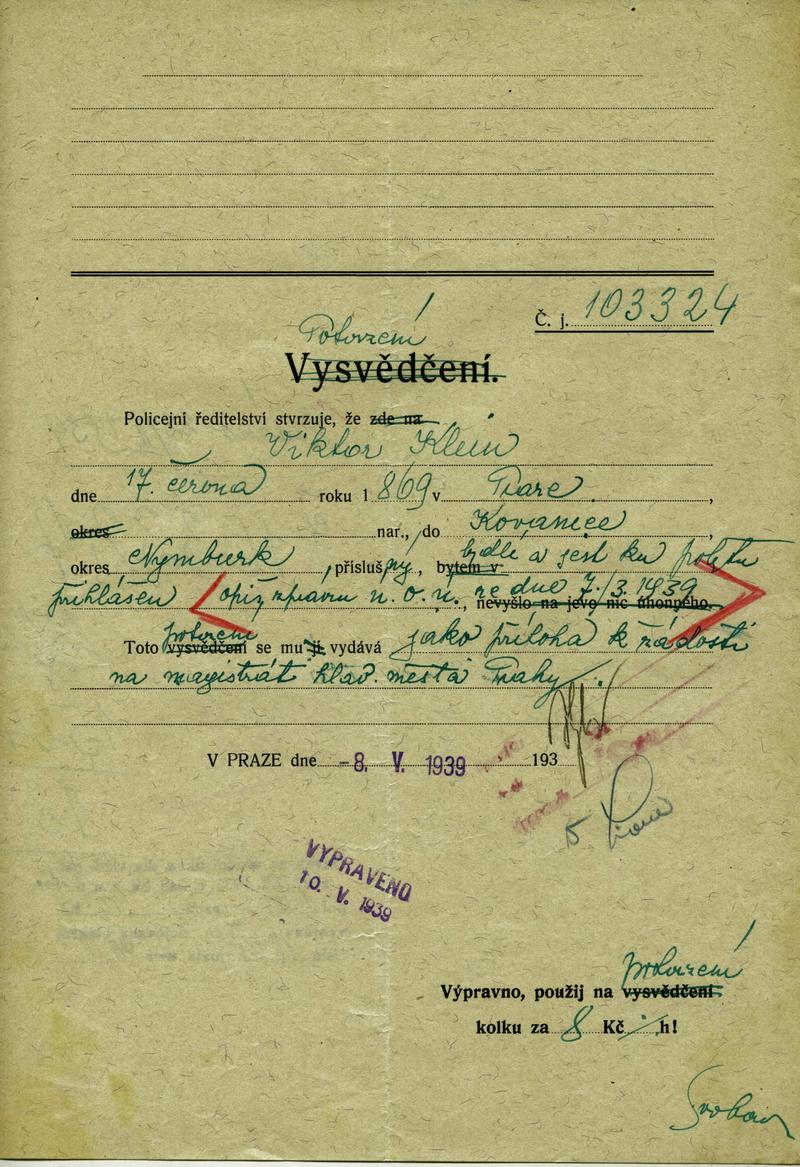 Č. j. 103324
Potvrzení
Vysvědčení.
Policejní ředitelství stvrzuje, že zde na
Viktor Klein
dne 17. června roku 1869 v Praze,
okres nar., do Kovanice,
okres Nymburk, přísluš, bytem v bydlí a jest ku pobytu
přihlášen opis zprávu n. o. ú. ze dne 7./3. 1939, nevyšlo na jevo nic úhonného.
potvrzení
Toto vysvědčení se mu-jí vydává jako příloha k žádosti
na magistrát hlav. města Prahy.
V PRAZE dne -8. V. 1939 193
VYPRAVENO
10. V. 1939
potvrzení
Výpravno, použij na vysvědčení
kolku za 8 Kč h!
Svoboda